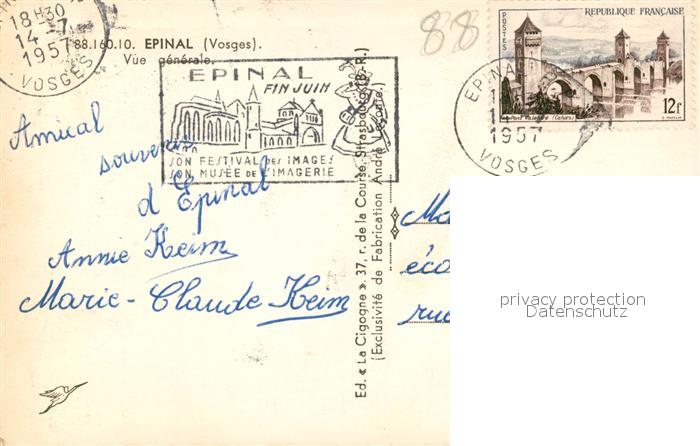 18H30
14-7
1957
VOSGES
88.160.10. EPINAL (Vosges).
Vue générale.
88
EPINAL
FIN JUIN
SON FESTIVAL DES IMAGES
SON MUSÉE DE L'IMAGERIE
POSTES
REPUBLIQUE FRANÇAISE
12f
EPINAL
1957
VOSGES
Amical
souvenir
d'Epinal
Annie Keim
Marie-Claude Keim
Ed. « La Cigogne », 37, r. de la Course, Strasbourg (B.-R.)
(Exclusivité de Fabrication André
éco
rue
privacy protection
Datenschutz